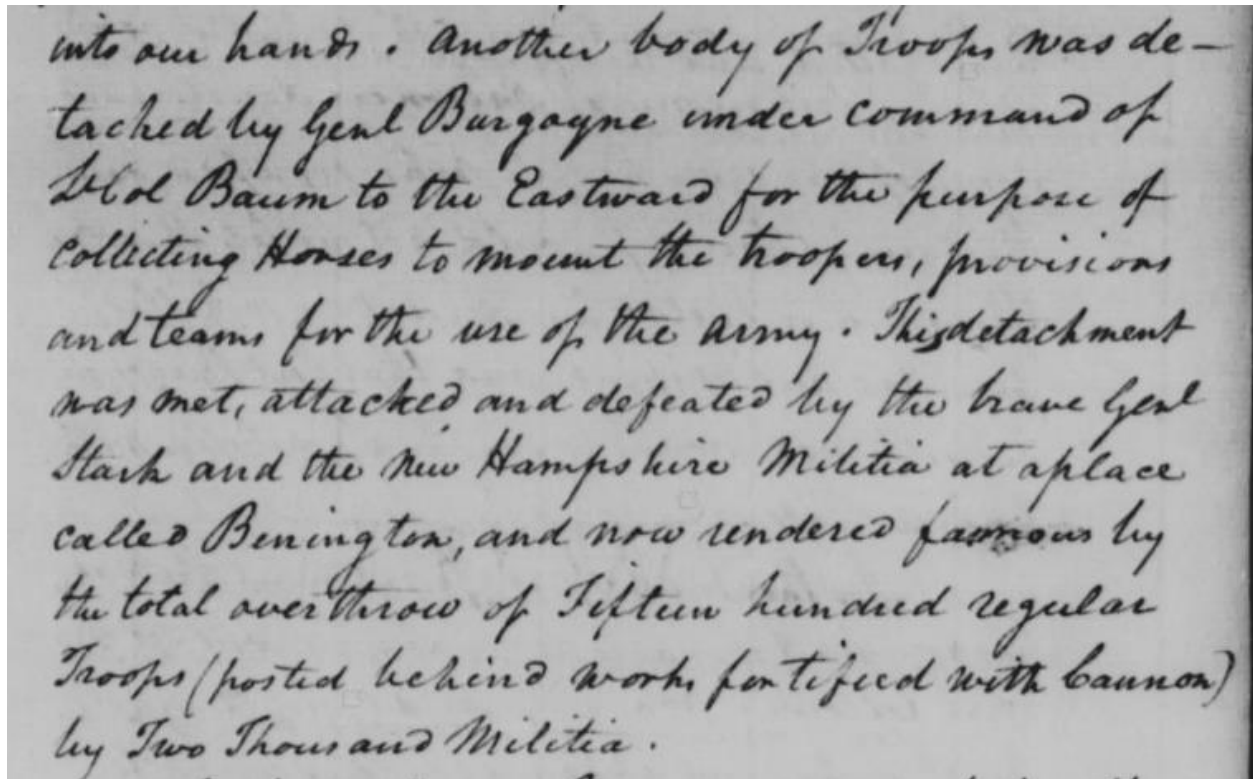 into our hands. Another body of Troops was de-
tached by Genl Burgoyne under command of
Lt Col Baum to the Eastward for the purpose of
collecting Horses to mount the troopers, provisions
and teams for the use of the army. This detachment
was met, attacked and defeated by the brave Genl
Stark and the New Hampshire Militia at a place
called Benington, and now rendered famous by
the total overthrow of Fifteen hundred regular
Troops (posted behind works fortified with Cannon)
by Two Thousand Militia.